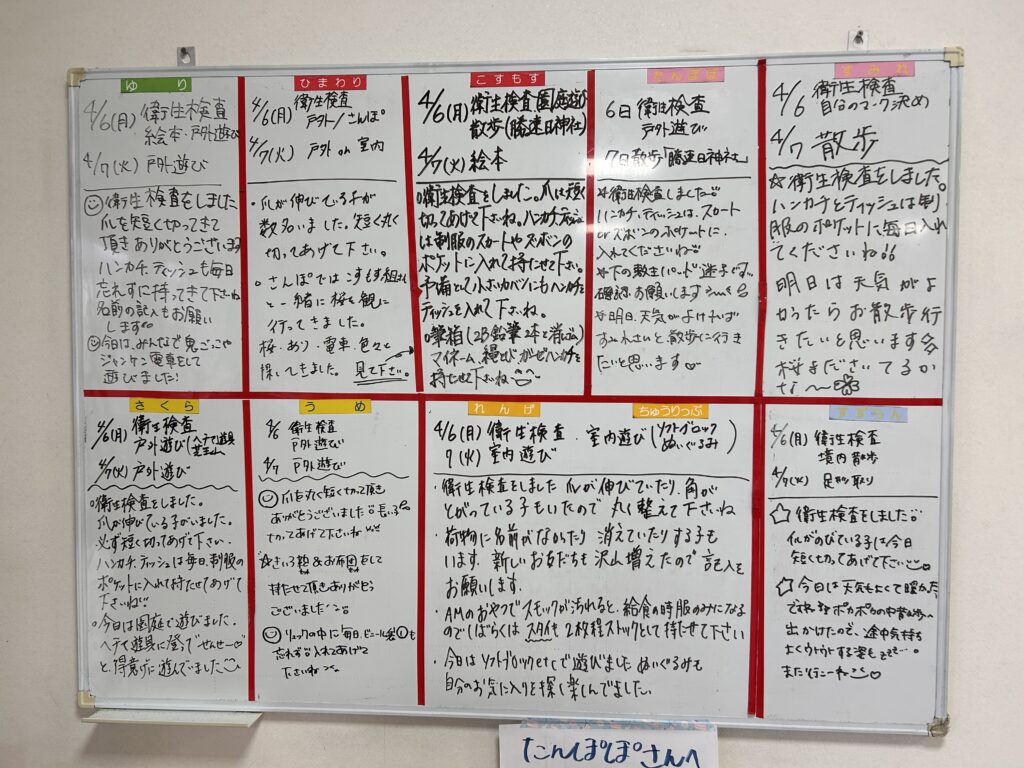 ゆり
4/6(月) 衛生検査
絵本・戸外遊び
4/7(火) 戸外遊び
衛生検査をしました
爪を短く切ってきて
頂きありがとうございます
ハンカチ、ティッシュも毎日
忘れずに持ってきて下さいね
名前の記入もお願い
します
今日は、みんなで鬼ごっこや
ジャンケン電車をして
遊びました!
ひまわり
4/6(月) 衛生検査
戸外/さんぽ
4/7(火) 戸外 or 室内
・爪が伸びている子が
数名いました。短く丸く
切ってあげて下さい。
・さんぽではこすもす組さん
と一緒に桜を観に
行ってきました。
桜・あり・電車・色々と
探してきました。見て下さい。
こすもす
4/6(月) 衛生検査、園庭遊び
散歩(勝速日神社)
4/7(火) 絵本
○衛生検査をしました。爪は短く
切ってあげて下さいね。ハンカチ、ティッシュ
は制服のスカートやズボンの
ポケットに入れて持たせて下さい。
予備として小さいカバンにもハンカチと
ティッシュを入れて下さいね。
○筆箱(2B鉛筆2本と消しゴム)
マイネーム、縄とび、ガーゼハンカチを
持たせて下さいね
たんぽぽ
6日 衛生検査
戸外遊び
7日 散歩「勝速日神社」
☆衛生検査しました
ハンカチ、ティッシュは、スカート
やズボンのポケットに、
入れてくださいね
確認お願いします
☆明日、天気がよければ
すみれさんと、散歩に行き
たいと思います♡
すみれ
4/6 衛生検査
自分のマーク決め
4/7 散歩
☆衛生検査をしました。
ハンカチとティッシュは制
服のポケットに毎日入れ
てくださいね!!
明日は天気がよ
かったらお散歩行
きたいと思います
桜まださいてるか
な〜
さくら
4/6(月) 衛生検査
戸外遊び(ヘテマ遊具
芝生山)
4/7(火) 戸外遊び
○衛生検査をしました。
爪が伸びている子がいました。
必ず短く切ってあげて下さい。
ハンカチ、ティッシュは毎日、制服の
ポケットに入れて持たせてあげて
下さいね!!
○今日は園庭で遊びました。
ヘテマ遊具に登って「せんせー♡」
と、得意げに遊んでました
うめ
4/6 衛生検査
戸外遊び
4/7 戸外遊び
爪を丸く短く切って頂き
ありがとうございました
切ってあげて下さいね
☆きいろ塾&お布団をして
持たせて頂きありがとう
ございました
リュックの中に毎日、ビニール袋①も
忘れず入れてあげて
下さいね
れんげ ちゅうりっぷ
4/6(月) 衛生検査・室内遊び(ソフトブロック
ぬいぐるみ)
7(火) 室内遊び
・衛生検査をしました 爪が伸びていたり、角が
とがっている子もいたので 丸く整えて下さいね
・荷物に名前がなかったり 消えていたりする子も
います。新しいお友だちも 沢山増えたので 記入を
お願いします.
・AMのおやつでスモックが汚れると、給食の時服のみになる
のでしばらくは スタイも 2枚程ストックとして持たせて下さい
・今日は ソフトブロック etc で遊びました ぬいぐるみも
自分のお気に入りを探し楽しんでました.
すずらん
4/6(月) 衛生検査
境内散歩
4/7(火) 足形取り
☆衛生検査をしました
爪がのびている子は今日
短く切ってあげて下さい
☆今日は天気もよくて暖かった
ですね ポカポカの中散歩へ
出かけたので、途中気持ち
よくウトウトする姿も zzz…
また行こーね♡
たんぽぽさんへ